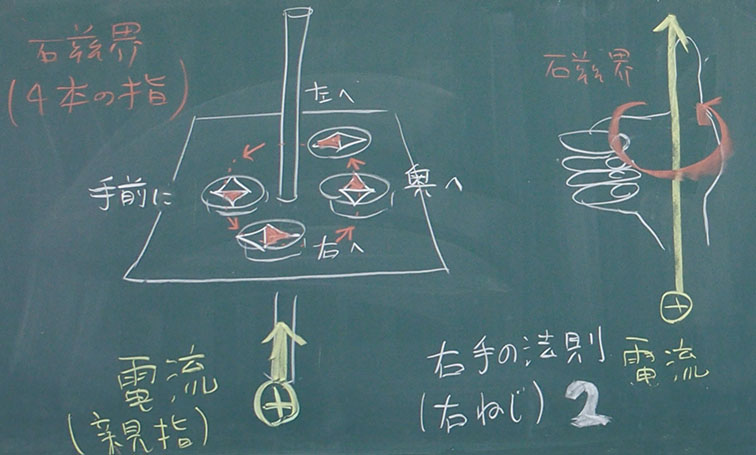 磁界
(4本の指)
左へ
手前に
奥へ
右へ
電流
(親指)
+
磁界
+
電流
右手の法則
(右ねじ) 2